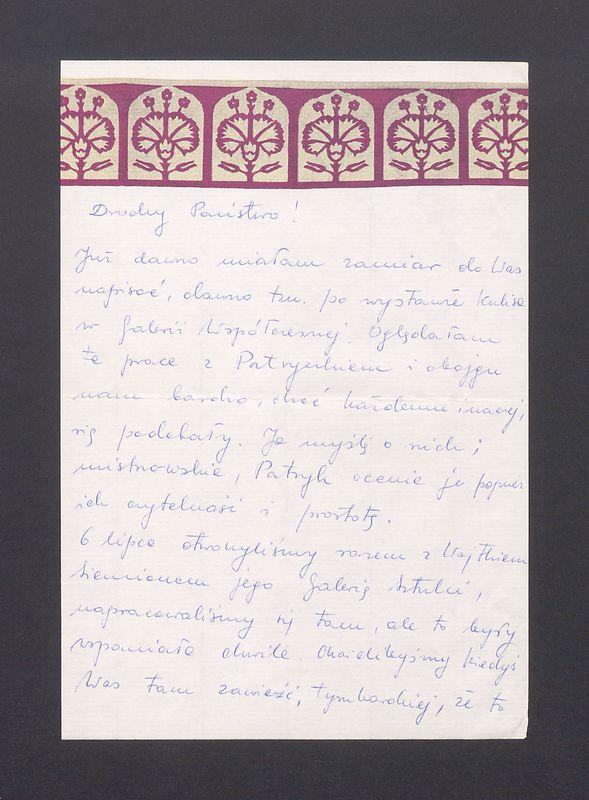 Drodzy Państwo!
Już dawno miałam zamiar do Was
napisać, dawno tzn. po wystawie Kulisa
w Galerii Współczesnej. Oglądałam
te prace z Patryckiem i obojgu
nam bardzo, choć każdemu inaczej,
się podobały. Ja myślę o nich;
mistrzowskie, Patryk ocenia je poprzez
ich czytelność i prostotę.
6 lipca otworzyliśmy razem z Wojtkiem
Siemionem jego Galerię Sztuki,
napracowaliśmy się tam, ale to były
wspaniałe chwile. Chcielibyśmy kiedyś
Was tam zawieźć, tymbardziej, że to